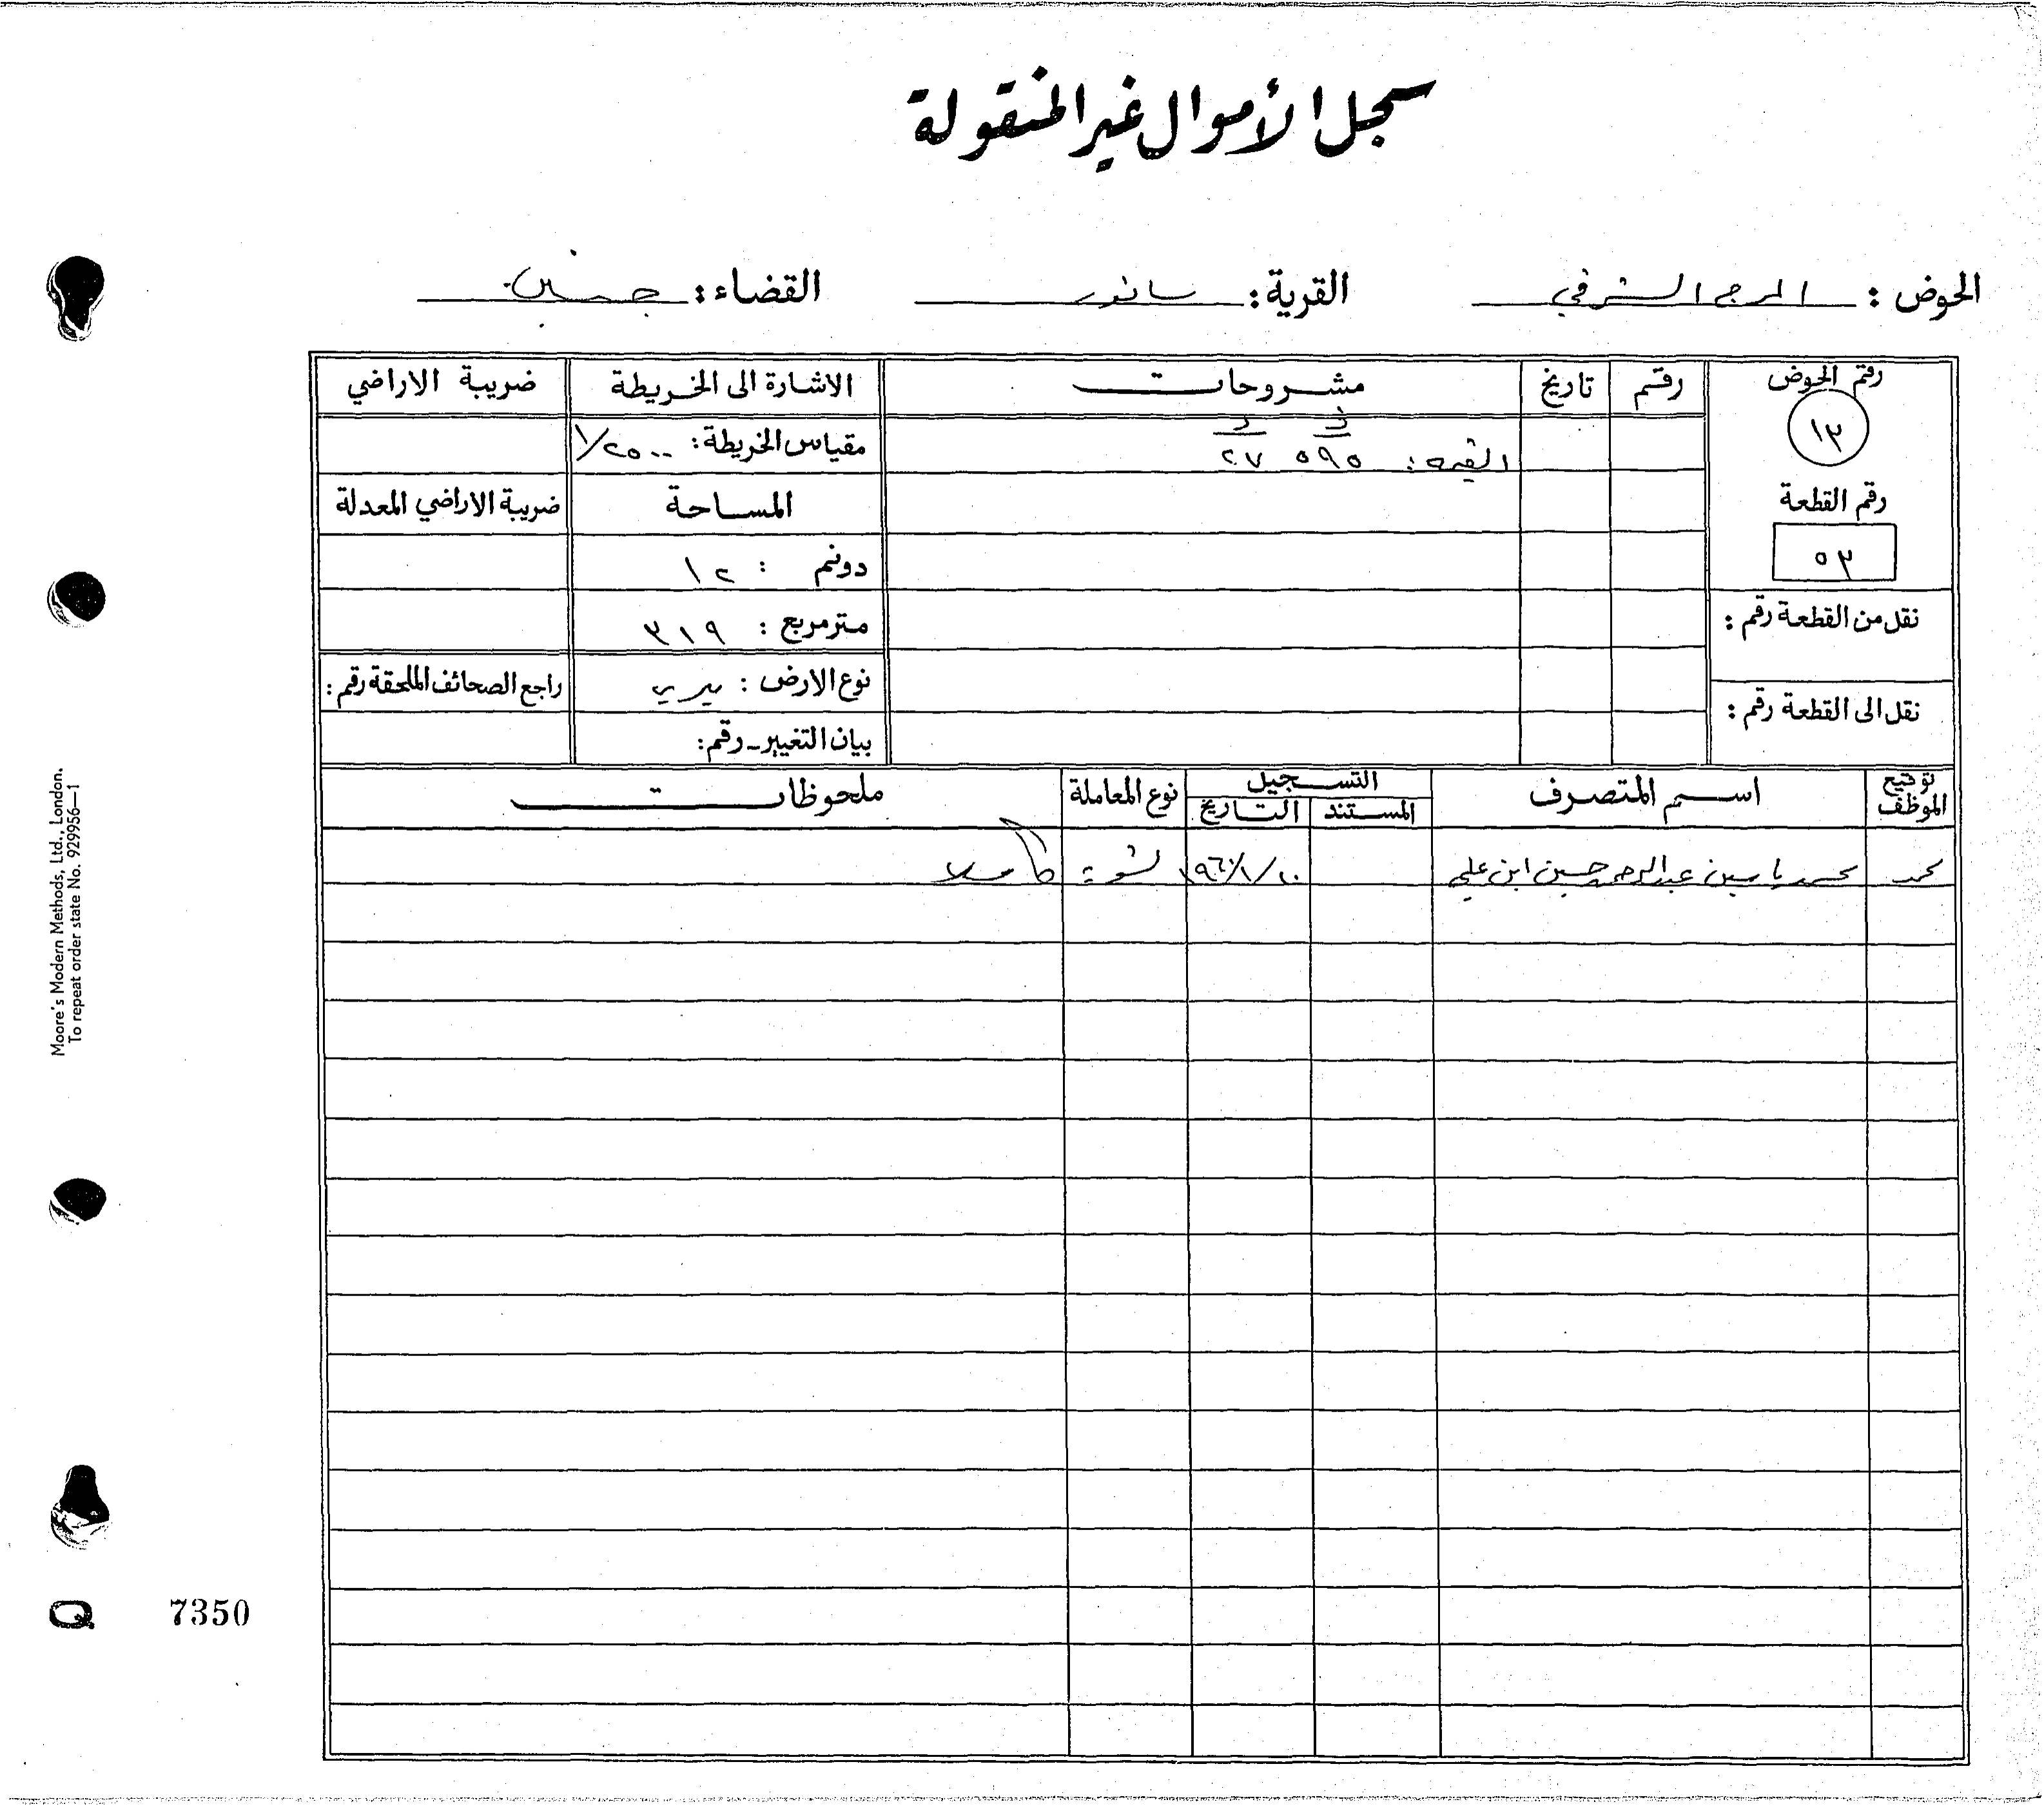 سجل الأموال غير المنقولة
الحوض : المرج الشرقي القرية : سانور القضاء : جنين
رقم الحوض رقم تاريخ مشروحات الاشارة الى الخريطة ضريبة الاراضي
١٣
القيمه : ٥٩٥ ٢٧ مقياس الخريطة : ١/٢٥٠٠
رقم القطعة المساحة ضريبة الاراضي المعدلة
٥٣ دونم : ١٢
نقل من القطعة رقم : متر مربع : ٣١٩
نوع الارض : ميري راجع الصحائف الملحقة رقم :
نقل الى القطعة رقم : بيان التغيير - رقم :
توقيع الموظف اسم المتصرف التسجيل نوع المعاملة ملحوظات
المستند التاريخ
محمد محمد ياسين عبدالرحمن حسين ابن علي تسوية كاملا
Moore's Modern Methods, Ltd., London.
To repeat order state No. 929956—1
Q 7350